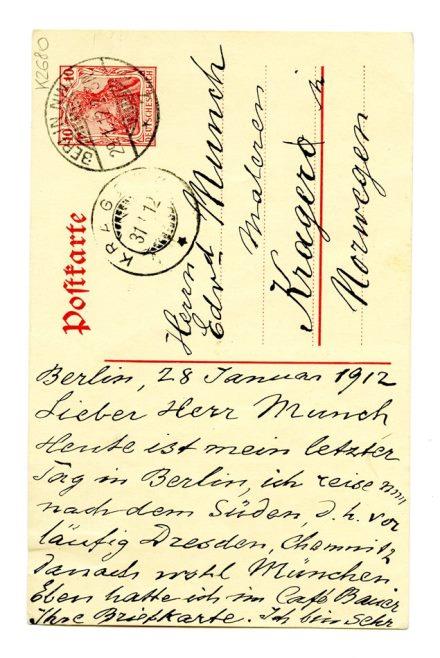 K2680
BERLIN NW
10 10
DEUTSCHES REICH
KRAG
31 1 12
Postkarte
Herrn
Edv. Munch
Maleren
Kragerö
Norwegen
Berlin, 28 Januar 1912
Lieber Herr Munch
Heute ist mein letzter
Tag in Berlin, ich reise nun
nach dem Süden, d. h. vor
läufig Dresden, Chemnitz
danach wohl München.
Eben hatte ich im Café Bauer
Ihre Briefkarte. Ich bin sehr